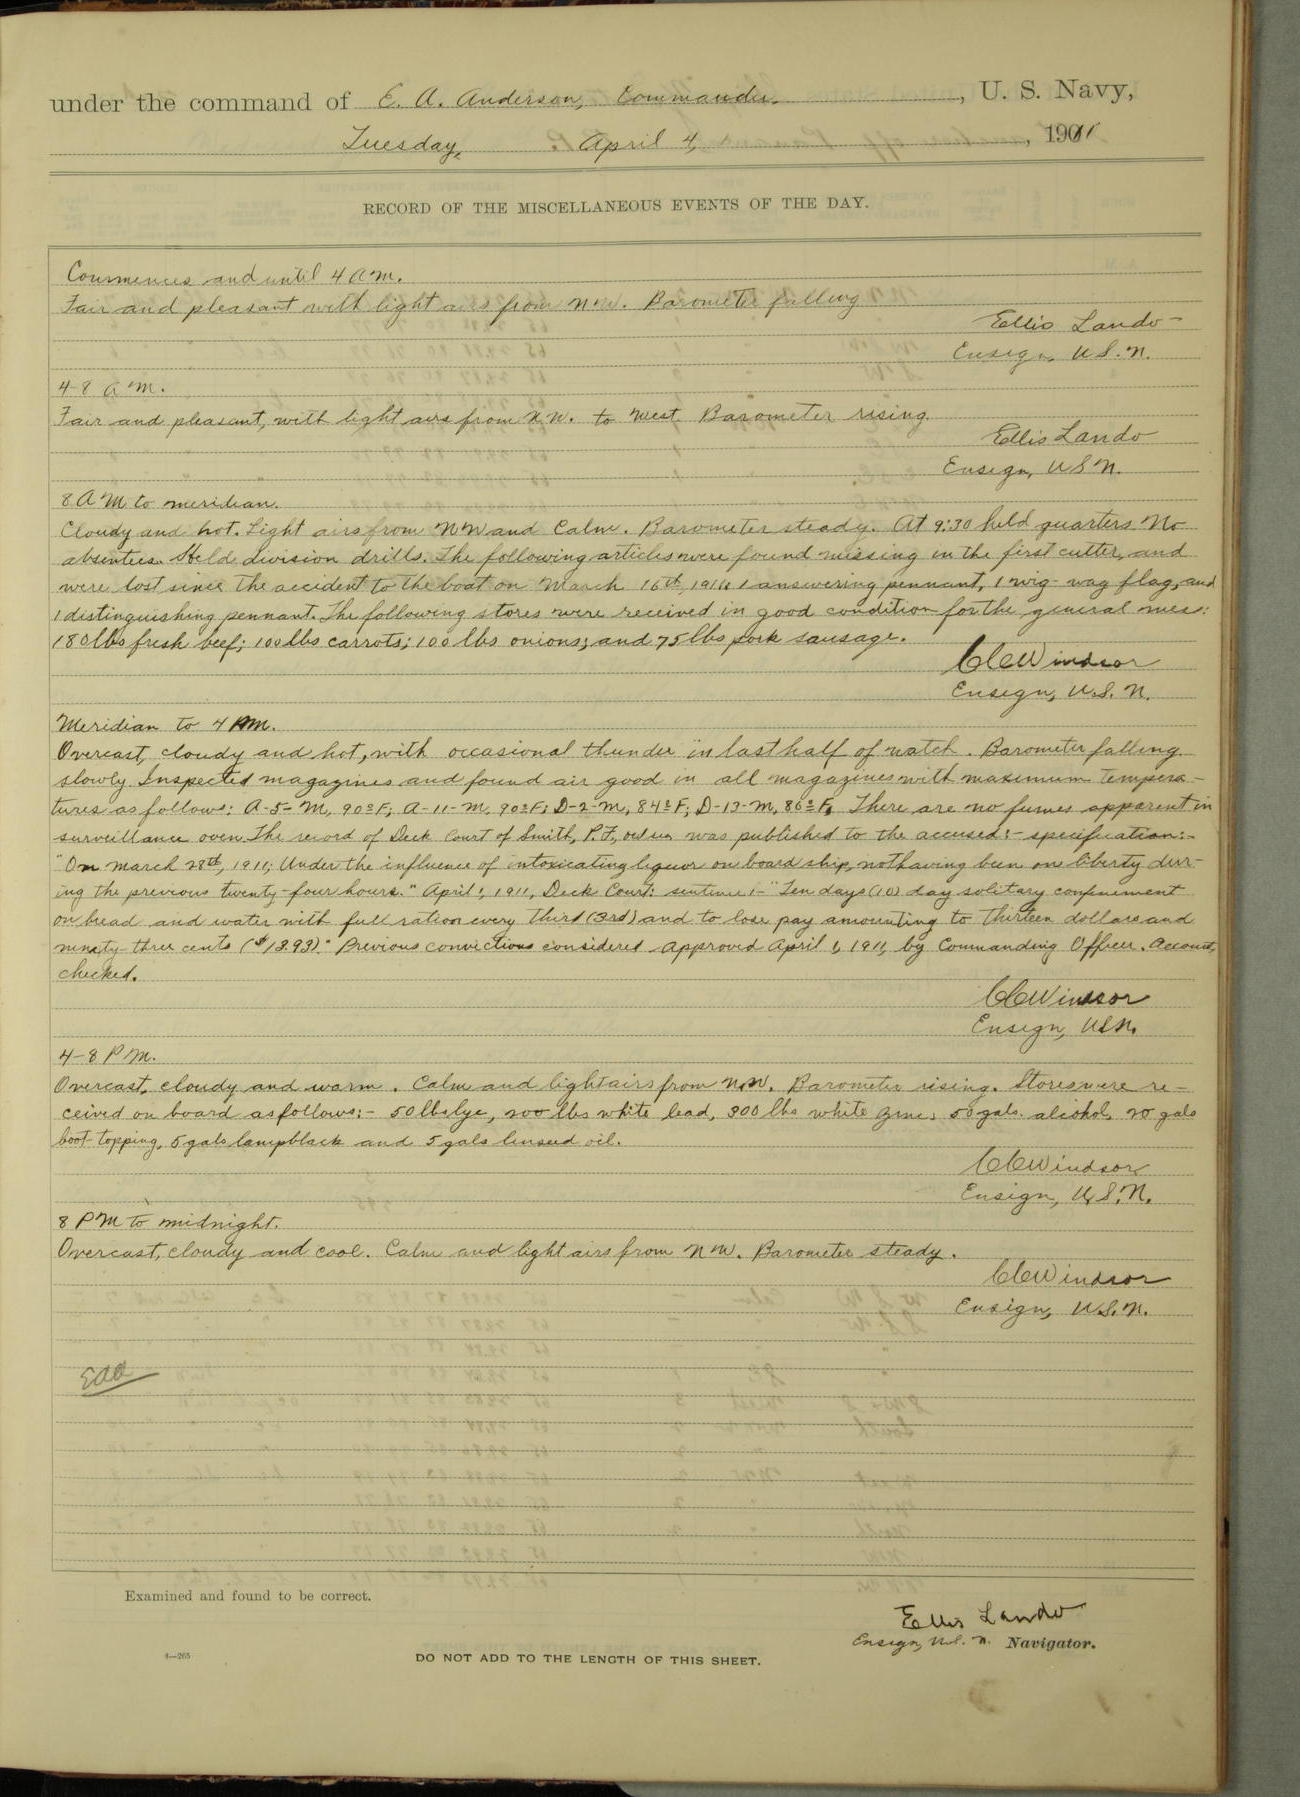 under the command of E. A. Anderson, Commander, U. S. Navy,
Tuesday, April 4, 1911
RECORD OF THE MISCELLANEOUS EVENTS OF THE DAY.
Commences and until 4 A.M.
Fair and pleasant with light airs from N.W. Barometer falling
Ellis Lando
Ensign, U.S.N.
4-8 A.M.
Fair and pleasant, with light airs from N.W. to West. Barometer rising.
Ellis Lando
Ensign, U.S.N.
8 A M to meridian.
Cloudy and hot. Light airs from NW and Calm. Barometer steady. At 9:30 held quarters No
absentees. Held division drills. The following articles were found missing in the first cutter, and
were lost since the accident to the boat on March 16th, 1911: 1 answering pennant, 1 wig-wag flag, and
1 distinguishing pennant. The following stores were received in good condition for the general mess:
180 lbs fresh beef; 100 lbs carrots; 100 lbs onions; and 75 lbs pork sausage.
C C Windsor
Ensign, U.S.N.
Meridian to 4 PM.
Overcast, cloudy and hot, with occasional thunder in last half of watch. Barometer falling
slowly. Inspected magazines and found air good in all magazines with maximum tempera-
tures as follows: A-5-M, 90° F; A-11-M, 90° F; D-2-M, 84° F; D-13-M, 86° F. There are no fumes apparent in
surveillance oven. The record of Deck Court of Smith, P.F., was published to the accused:- specification:-
"On March 28th, 1911; Under the influence of intoxicating liquor on board ship, not having been on liberty dur-
ing the previous twenty-four hours." April 1, 1911, Deck Court: sentence:- "Ten days (10) day solitary confinement
on bread and water with full ration every third (3rd) and to lose pay amounting to thirteen dollars and
ninety-three cents ($13.93)." Previous convictions considered Approved April 1, 1911, by Commanding Officer. Accounts,
checked.
C C Windsor
Ensign, U.S.N.
4-8 P M.
Overcast, cloudy and warm. Calm and light airs from N.W. Barometer rising. Stores were re-
ceived on board as follows:- 50 lbs lye, 200 lbs white lead, 300 lbs white zinc, 50 gals. alcohol, 20 gals
boot-topping, 5 gals lampblack and 5 gals linseed oil.
C C Windsor
Ensign, U.S.N.
8 P M to midnight.
Overcast, cloudy and cool. Calm and light airs from N W. Barometer steady.
C C Windsor
Ensign, U.S.N.
EAA
Examined and found to be correct.
Ellis Lando
Ensign, U.S.N. Navigator.
4—265
DO NOT ADD TO THE LENGTH OF THIS SHEET.